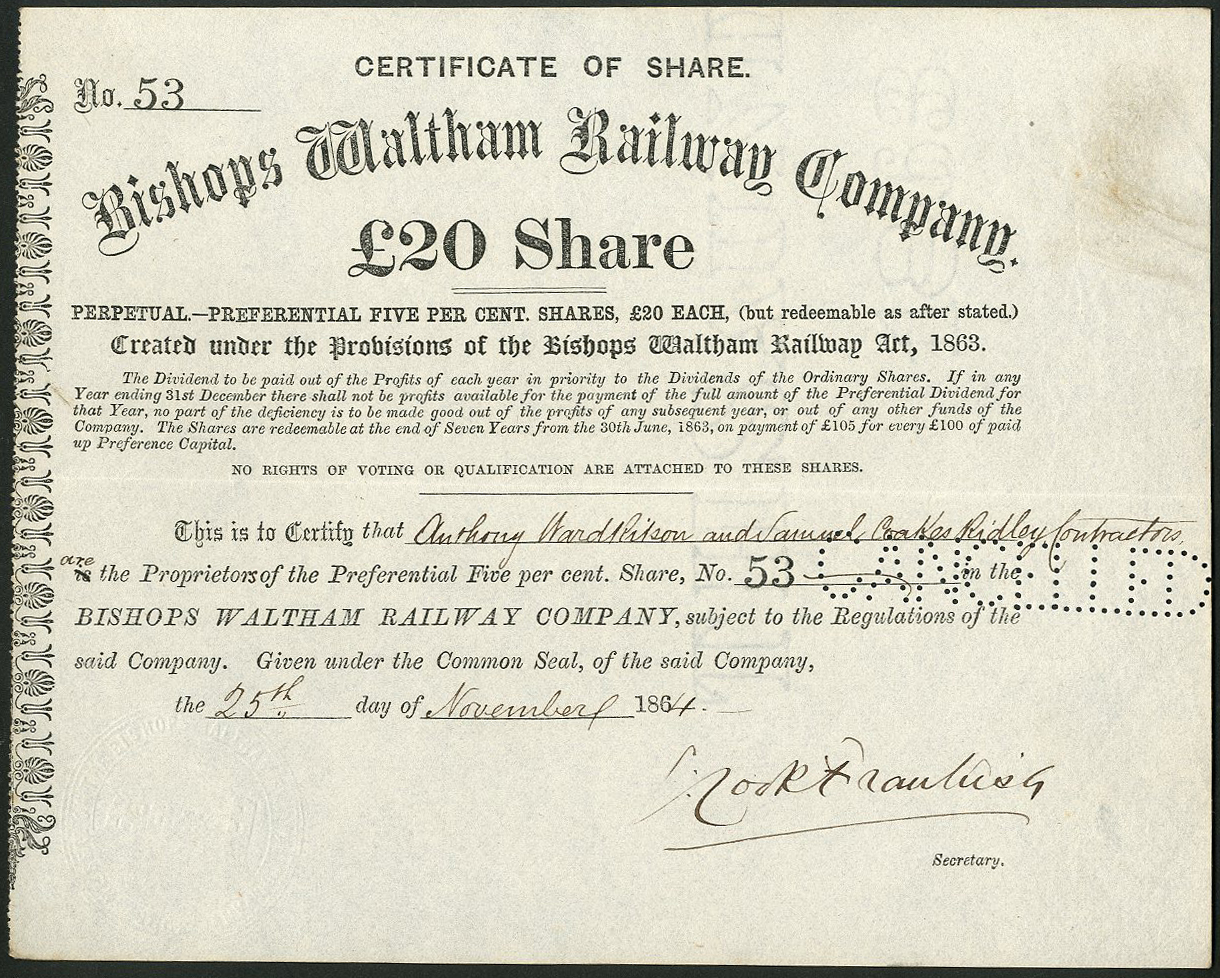 CERTIFICATE OF SHARE.
No. 53
Bishops Waltham Railway Company.
£20 Share
PERPETUAL.—PREFERENTIAL FIVE PER CENT. SHARES, £20 EACH, (but redeemable as after stated.)
Created under the Provisions of the Bishops Waltham Railway Act, 1863.
The Dividend to be paid out of the Profits of each year in priority to the Dividends of the Ordinary Shares. If in any
Year ending 31st December there shall not be profits available for the payment of the full amount of the Preferential Dividend for
that Year, no part of the deficiency is to be made good out of the profits of any subsequent year, or out of any other funds of the
Company. The Shares are redeemable at the end of Seven Years from the 30th June, 1863, on payment of £105 for every £100 of paid
up Preference Capital.
NO RIGHTS OF VOTING OR QUALIFICATION ARE ATTACHED TO THESE SHARES.
This is to Certify that Anthony Ward Kitson and Samuel Coakes Ridley Contractors
are
is the Proprietors of the Preferential Five per cent. Share, No. 53 in the
CANCELLED
BISHOPS WALTHAM RAILWAY COMPANY, subject to the Regulations of the
said Company. Given under the Common Seal, of the said Company,
the 25th day of November 1864.
Secretary.